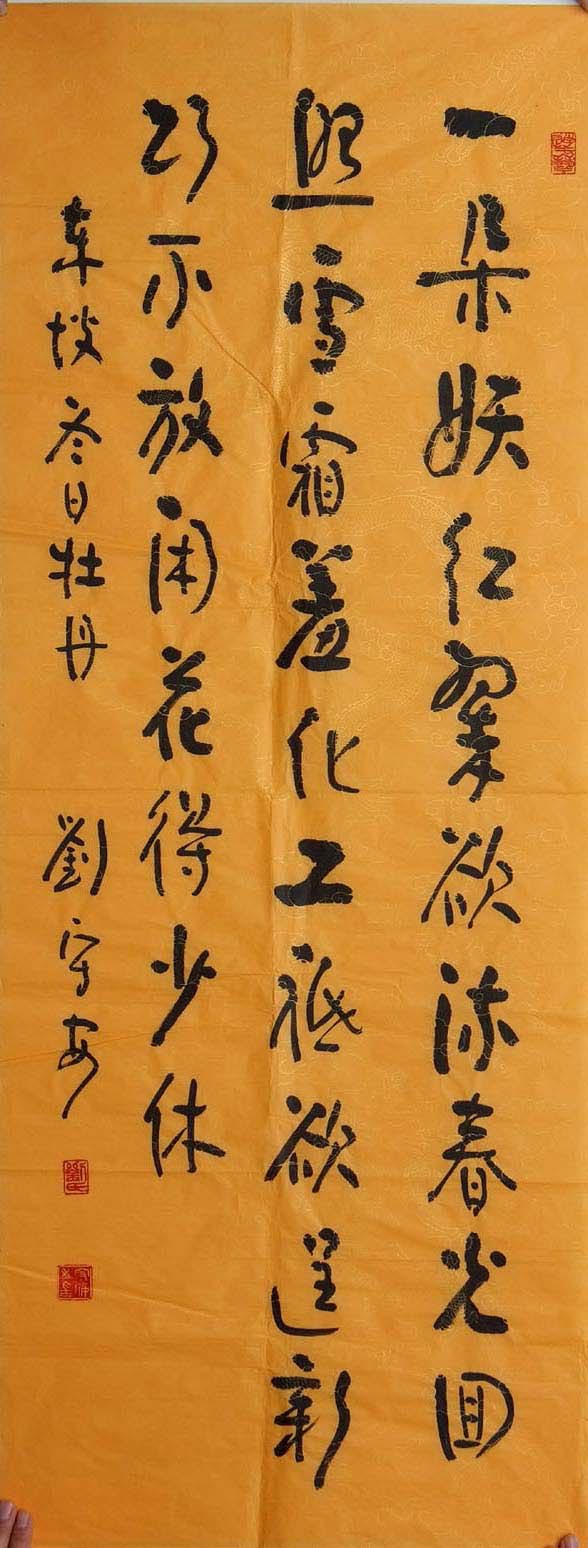 一朵妖紅翠欲流春光回
照雪霜羞化工祇欲逞新
巧不放閑花得少休
東坡冬日牡丹 劉守安